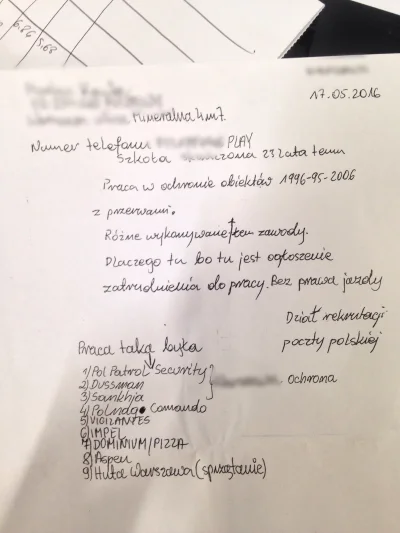 6,86
5,68
17.05.2016
Mineralna 4 m 7.
Numer telefonu PLAY
Szkoła 23 lata temu
Praca w ochronie obiektów 1996-95-2006
z przerwami.
Różne wykonywane zawody.
Dlaczego tu bo tu jest ogłoszenie
zatrudnienia do pracy. Bez prawa jazdy
Dział rekrutacji
poczty polskiej
Praca taka była
1) Pol Patrol Security
2) Dussman
3) Sankhja
ochrona
4) Comando
5) VIGILANTES
6) IMPEL
7) DOMINIUM/PIZZA
8) Aspen
9) Huta Warszawa (sprzątanie)